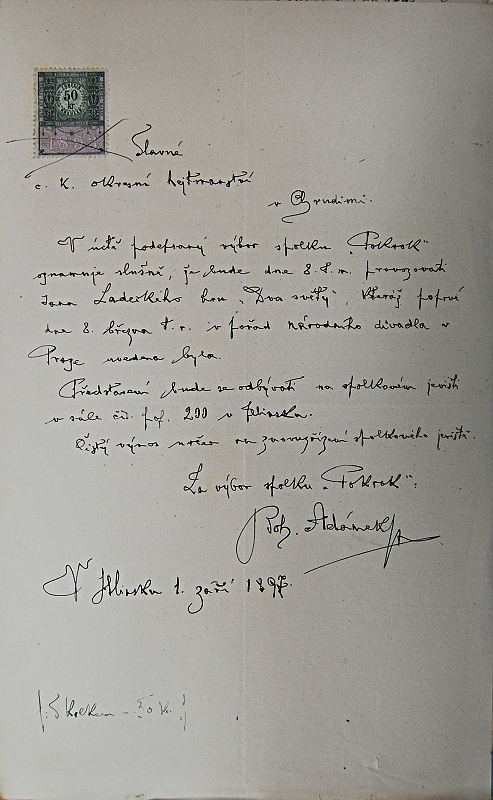 50
kr.
189
Slavné
c. k. okresní hejtmanství
v Chrudimi.
V úctě podepsaný výbor spolku „Pokrok“
oznamuje slušně, že bude dne 8. t. m. provozovati
Jana Ladeckého hru „Dva světy“, kteráž poprvé
dne 8. března t. r. v pořad národního divadla v
Praze uvedena byla.
Představení bude se odbývati na spolkovém jevišti
v sále čís. pop. 200 v Hlinsku.
Čistý výnos určen na znovuzřízení spolkového jeviště.
Za výbor spolku „Pokrok“:
Boh. Adámek
V Hlinsku 1. září 1897.
S kolkem – 50 k.